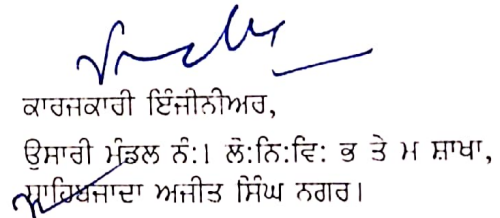 ਕਾਰਜਕਾਰੀ ਇੰਜੀਨੀਅਰ,
ਉਸਾਰੀ ਮੰਡਲ ਨੰ:। ਲੋ:ਨਿ:ਵਿ: ਭ ਤੇ ਮ ਸ਼ਾਖਾ,
ਸਾਹਿਬਜਾਦਾ ਅਜੀਤ ਸਿੰਘ ਨਗਰ।